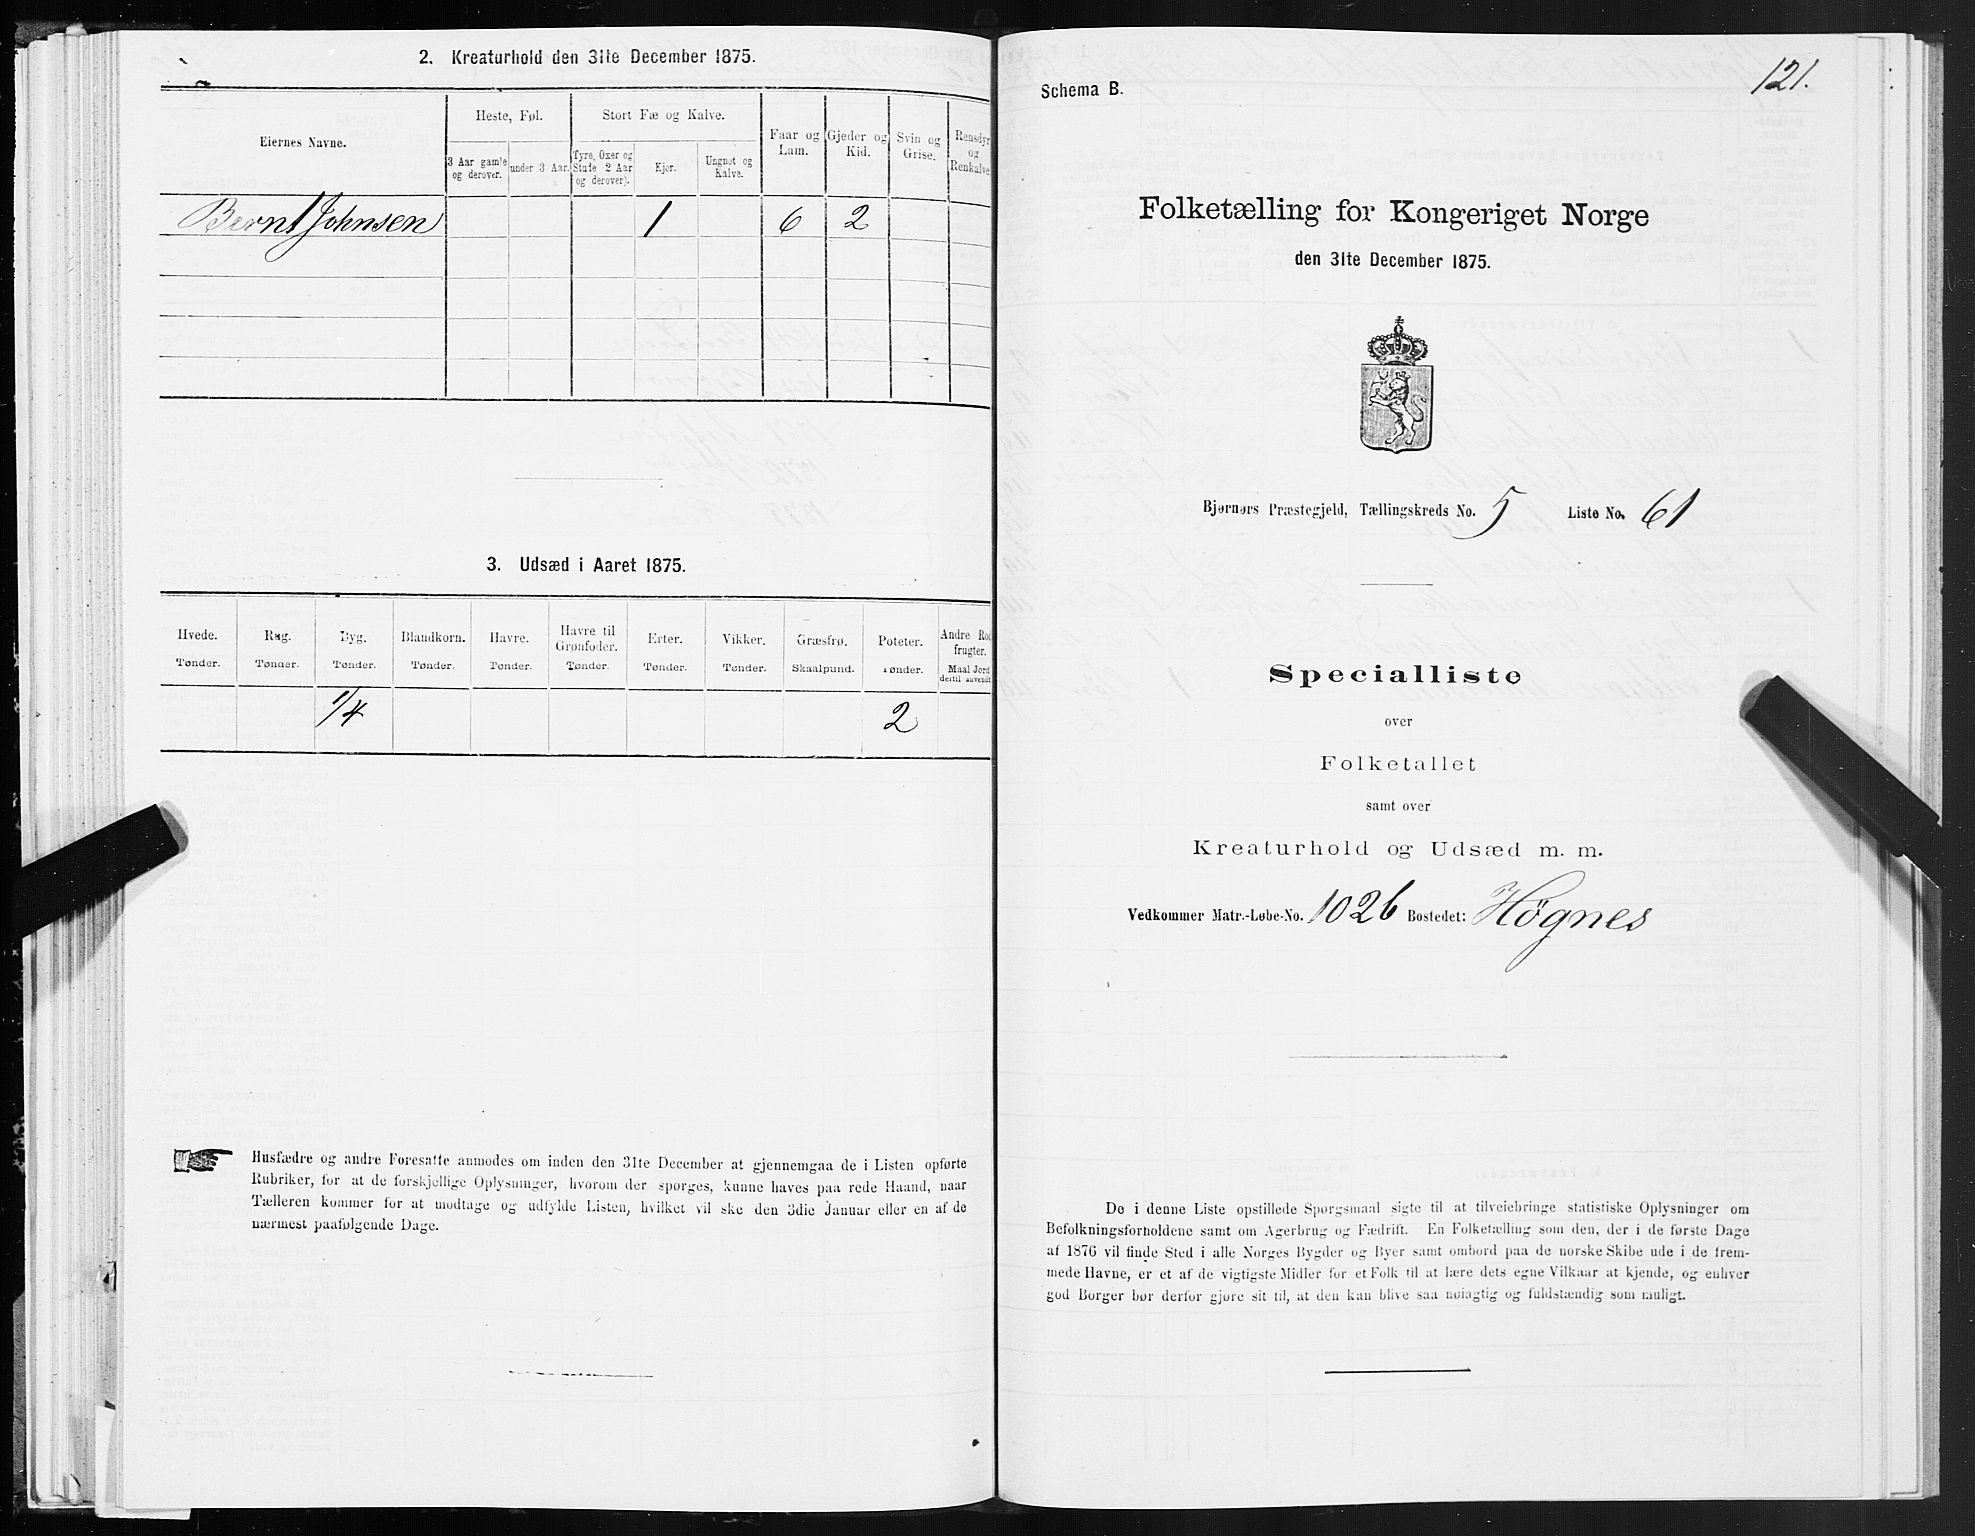 2. Kreaturhold den 31te December 1875.
Eiernes Navne.
Heste, Føl.
Stort Fæ og Kalve.
Faar og Lam.
Gjeder og Kid.
Svin og Grise.
Rensdyr og Renkalve
3 Aar gamle og derover.
under 3 Aar.
Tyre, Oxer og Stude 2 Aar og derover).
Kjør.
Ungnøt og Kalve.
Bernt Johnsen 1 6 2
3. Udsæd i Aaret 1875.
Hvede. Rug. Byg. Blandkorn. Havre. Havre til Grønfoder. Erter. Vikker. Græsfrø. Poteter. Andre Rod frugter.
Tønder. Tønder. Tønder. Tønder. Tønder. Tønder. Tønder. Tønder. Skaalpund. Tønder. Maal Jord dertil anvendt
1/4 2
Husfædre og andre Foresatte anmodes om inden den 31te December at gjennemgaa de i Listen opførte
Rubriker, for at de forskjellige Oplysninger, hvorom der spørges, kunne haves paa rede Haand, naar
Tælleren kommer for at modtage og udfylde Listen, hvilket vil ske den 3die Januar eller en af de
nærmest paafølgende Dage.
121.
Schema B.
Folketælling for Kongeriget Norge
den 31te December 1875.
Bjørnørs Præstegjeld, Tællingskreds No. 5 Liste No. 61
Specialliste
over
Folketallet
samt over
Kreaturhold og Udsæd m. m.
Vedkommer Matr.-Løbe-No. 102b Bostedet: Høgnes
De i denne Liste opstillede Spørgsmaal sigte til at tilveiebringe statistiske Oplysninger om
Befolkningsforholdene samt om Agerbrug og Fædrift. En Folketælling som den, der i de første Dage
af 1876 vil finde Sted i alle Norges Bygder og Byer samt ombord paa de norske Skibe ude i de frem-
mede Havne, er et af de vigtigste Midler for et Folk til at lære dets egne Vilkaar at kjende, og enhver
god Borger bør derfor gjøre sit til, at den kan blive saa nøiagtig og fuldstændig som muligt.